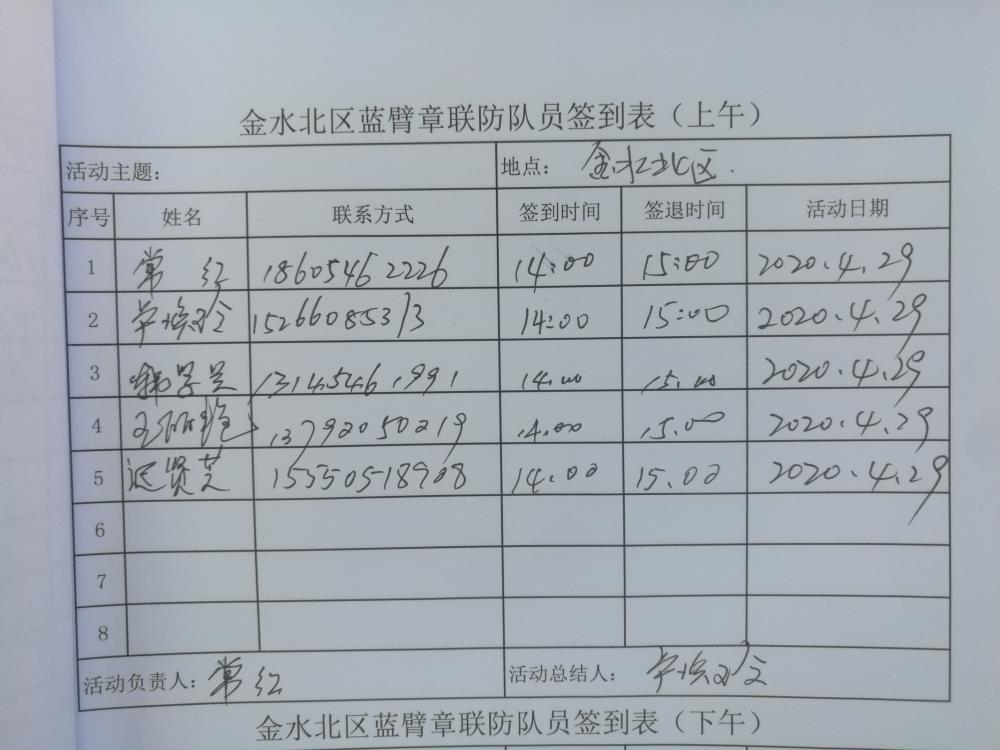 金水北区蓝臂章联防队员签到表（上午）
活动主题： 地点： 金水北区.
序号 姓名 联系方式 签到时间 签退时间 活动日期
1 常红 18605462226 14:00 15:00 2020.4.29
2 15266085313 14:00 15:00 2020.4.29
3 13145461991 14.00 15.00 2020.4.29
4 13792050219 14.00 15.00 2020.4.29
5 迟贤芝 15550518908 14.00 15.00 2020.4.29
6
7
8
活动负责人：常红 活动总结人：
金水北区蓝臂章联防队员签到表（下午）